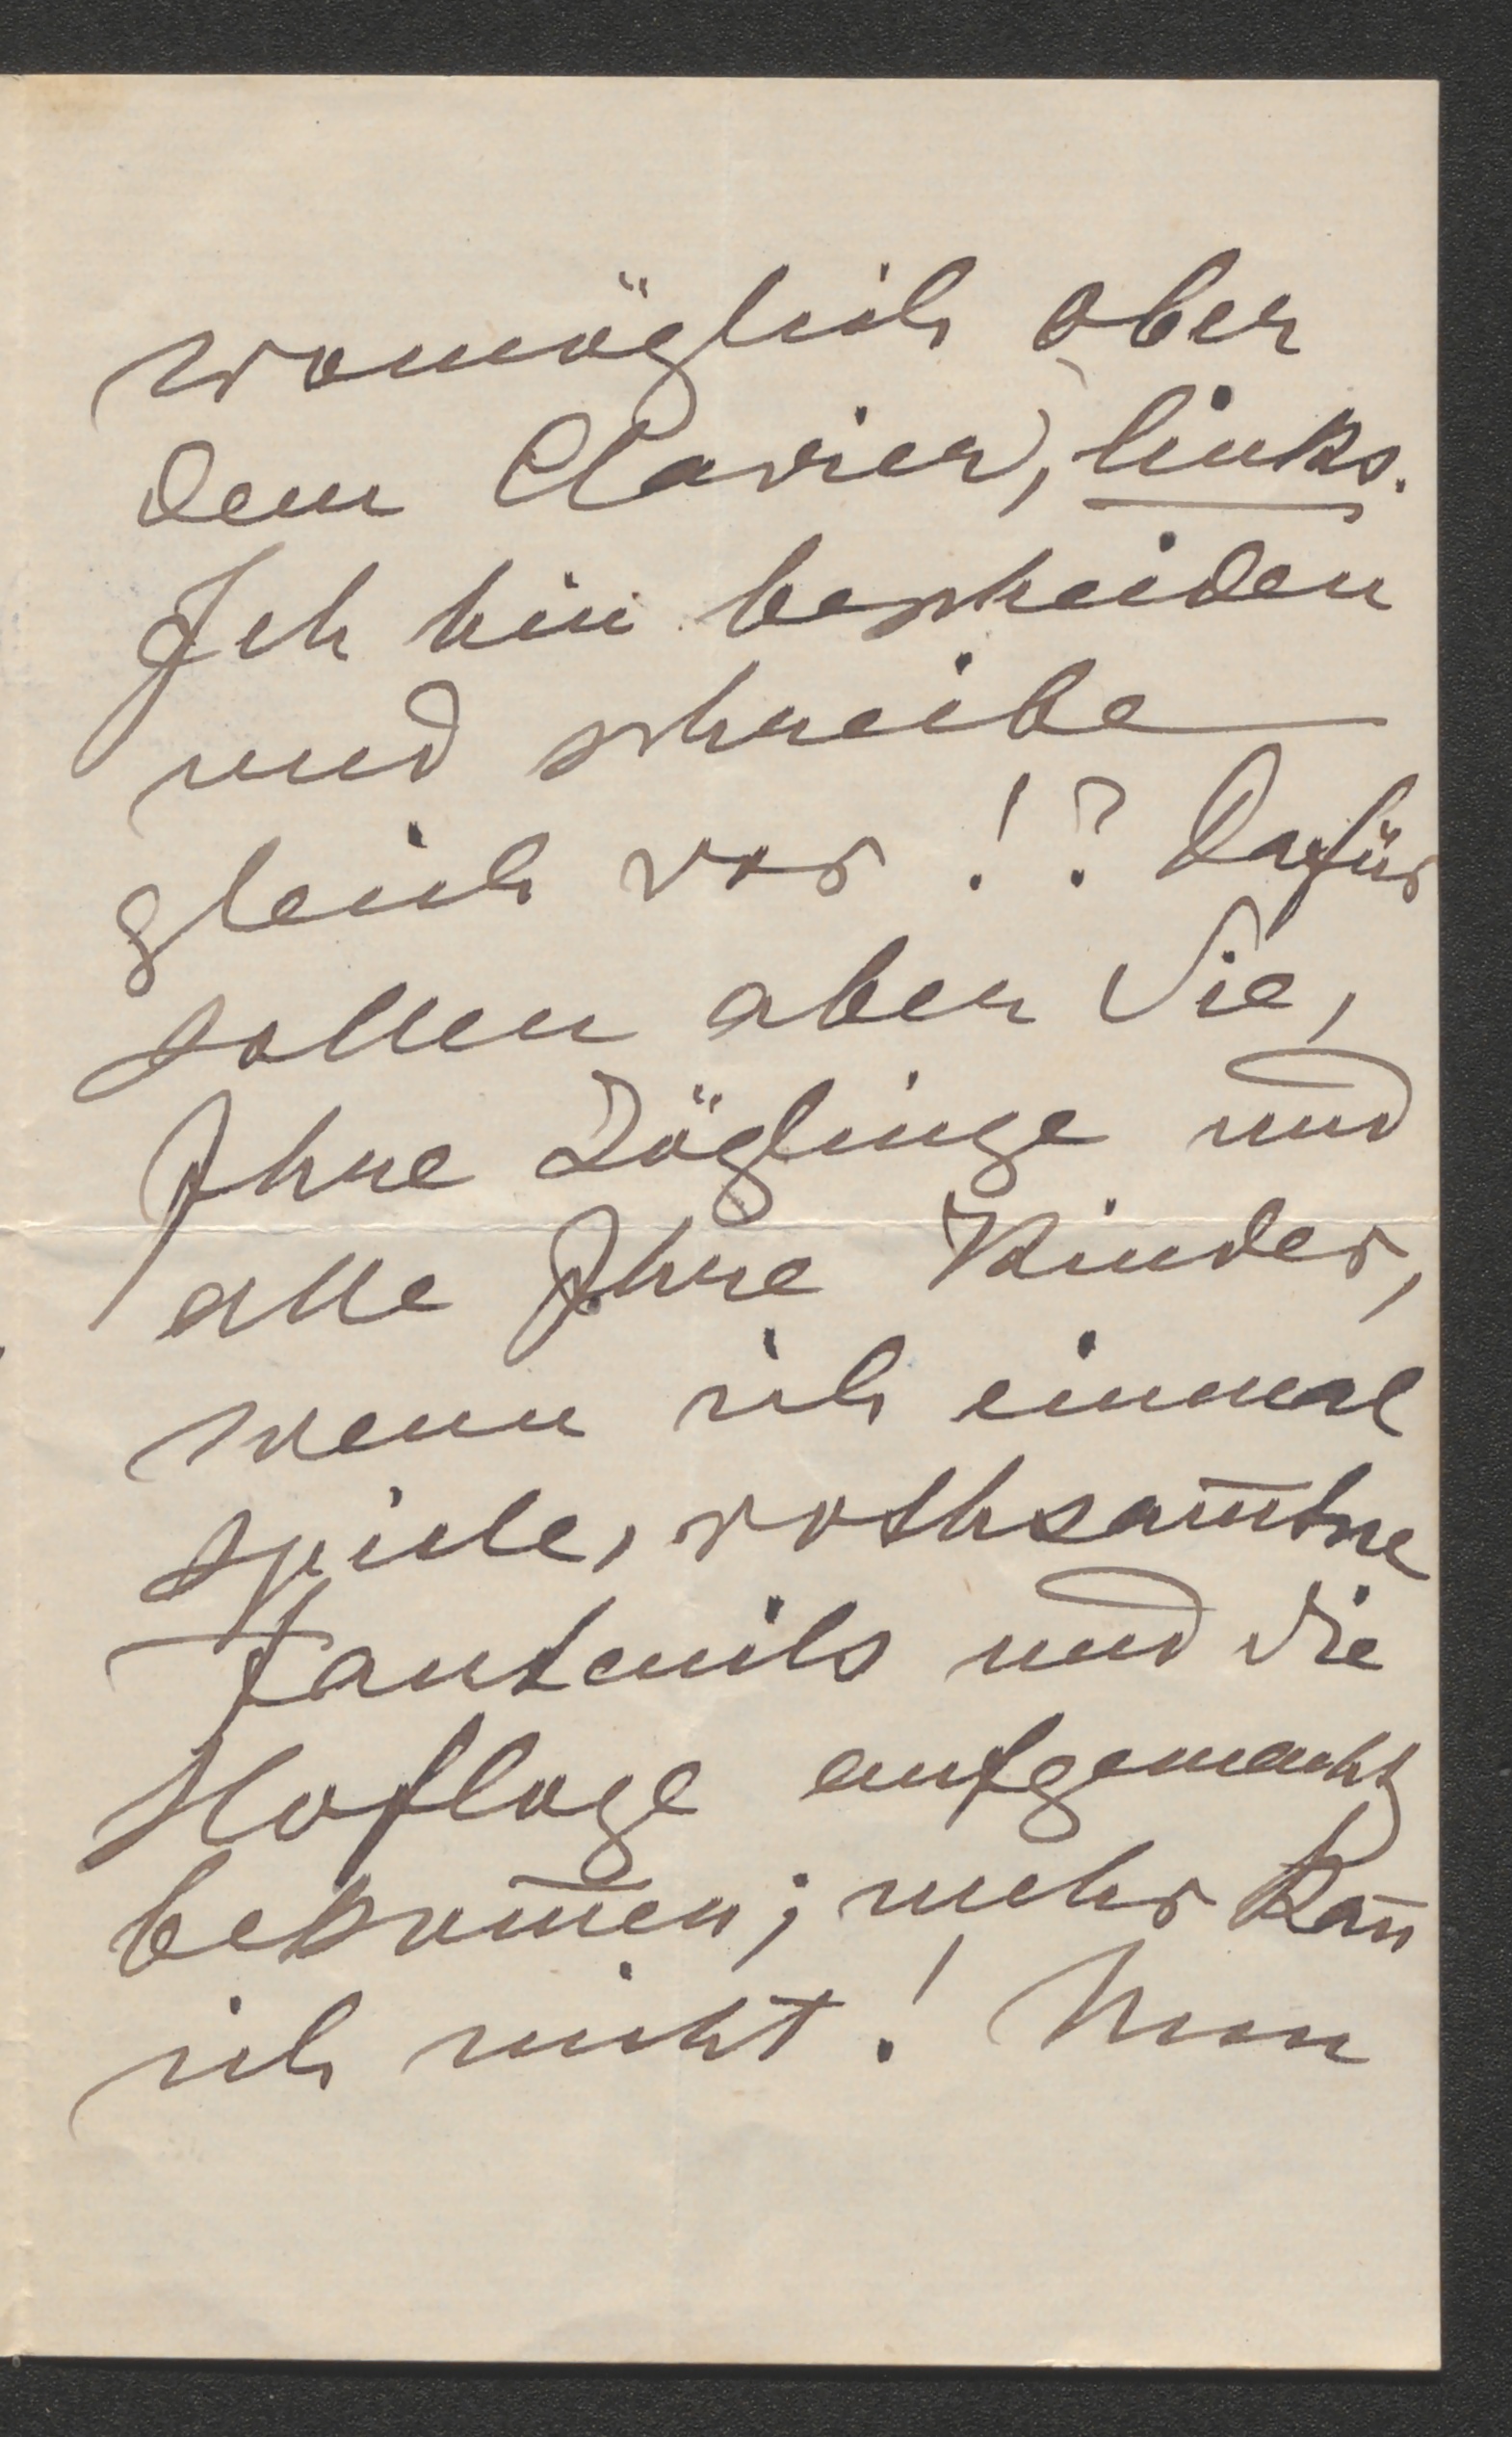 womöglich ober
dem Clavier, links.
Ich bin bescheiden
und schreibe
gleich vor!? Dafür
sollen aber Sie,
Ihre Zöglinge und
alle Ihre Kinder,
wenn ich einmal
spiele, rothsam̅tne
Fauteuils und die
Hofloge aufgemacht
bekom̅en; mehr kan̅
ich nicht! Nun